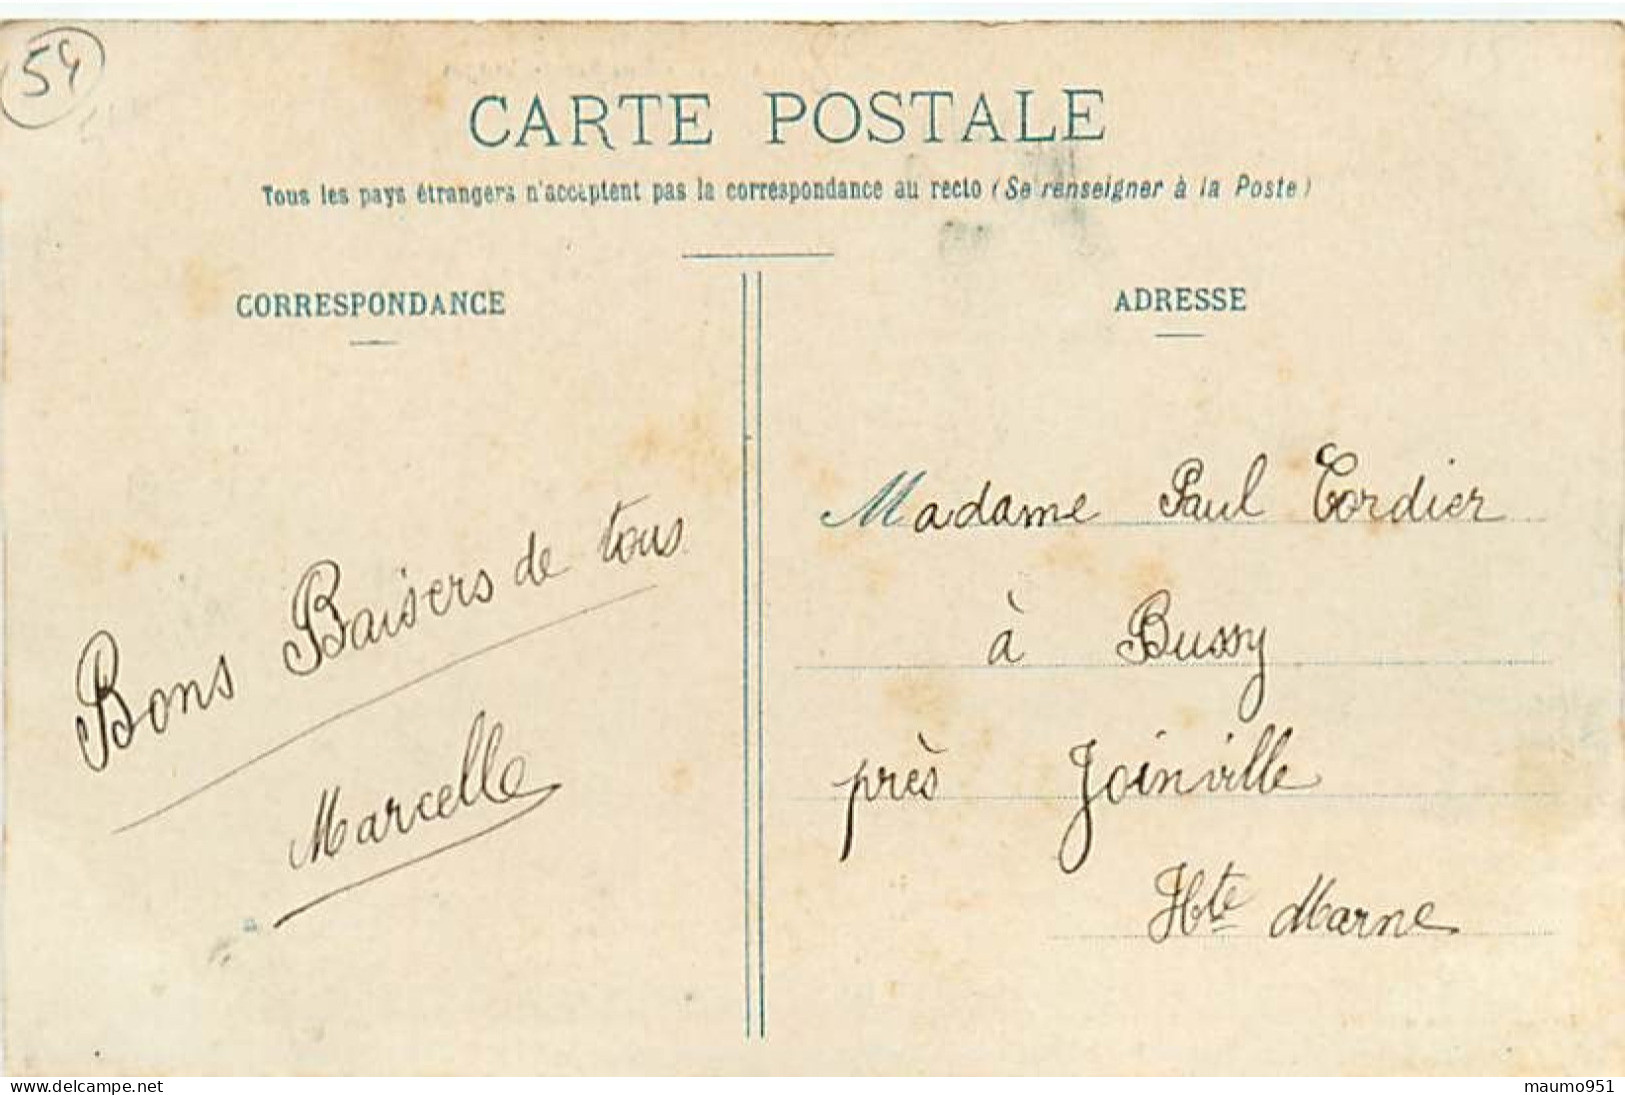 54
CARTE POSTALE
Tous les pays étrangers n'acceptent pas la correspondance au recto (Se renseigner à la Poste)
CORRESPONDANCE
Bons Baisers de tous
Marcelle
ADRESSE
Madame Paul Cordier
à Bussy
près Joinville
Hte Marne
delcampe.net
maumo951